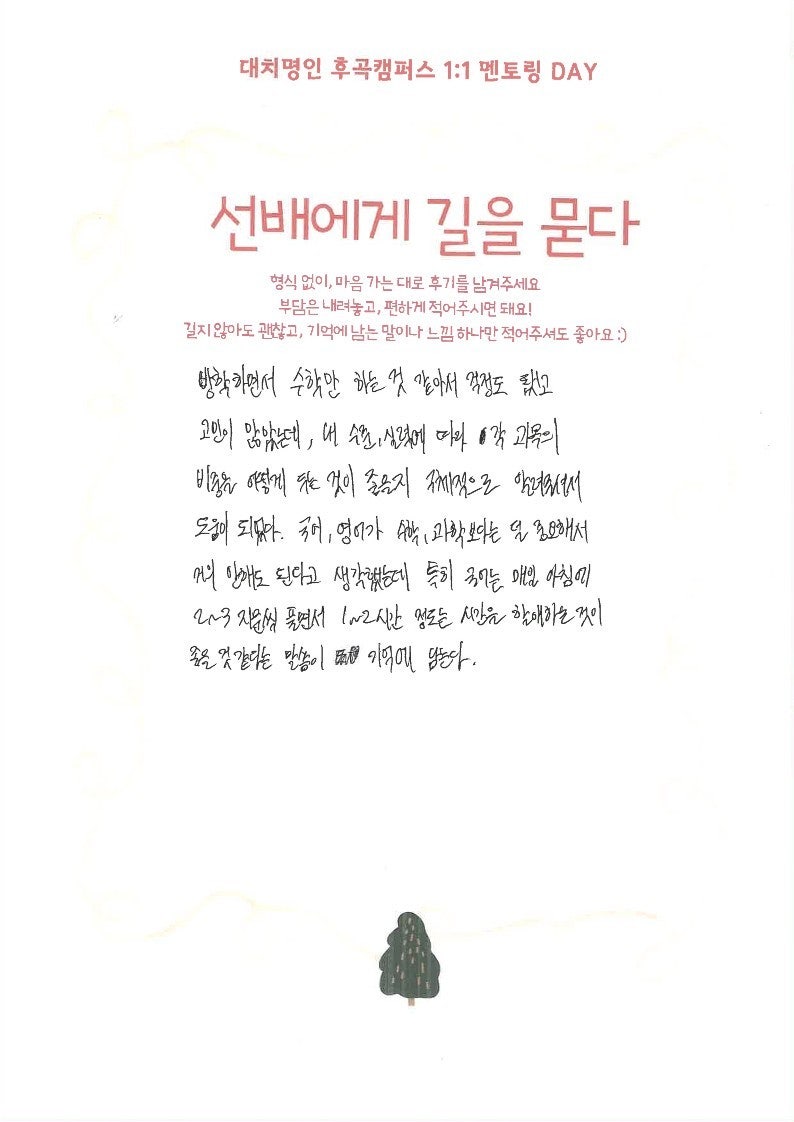 대치명인 후곡캠퍼스 1:1 멘토링 DAY
선배에게 길을 묻다
형식 없이, 마음 가는 대로 후기를 남겨주세요
부담은 내려놓고, 편하게 적어주시면 돼요!
길지 않아도 괜찮고, 기억에 남는 말이나 느낌 하나만 적어주셔도 좋아요 :)
방학하면서 수학만 하는 것 같아서 걱정도 됐고
고민이 많았는데, 내 수준, 실력에 따라 각 과목의
비중을 어떻게 두는 것이 좋을지 구체적으로 알려주셔서
도움이 되었다. 국어, 영어가 수학, 과학보다는 덜 중요해서
거의 안해도 된다고 생각했는데 특히 국어는 매일 아침에
2~3 지문씩 풀면서 1~2시간 정도는 시간을 할애하는 것이
좋을 것 같다는 말씀이 기억에 남는다.